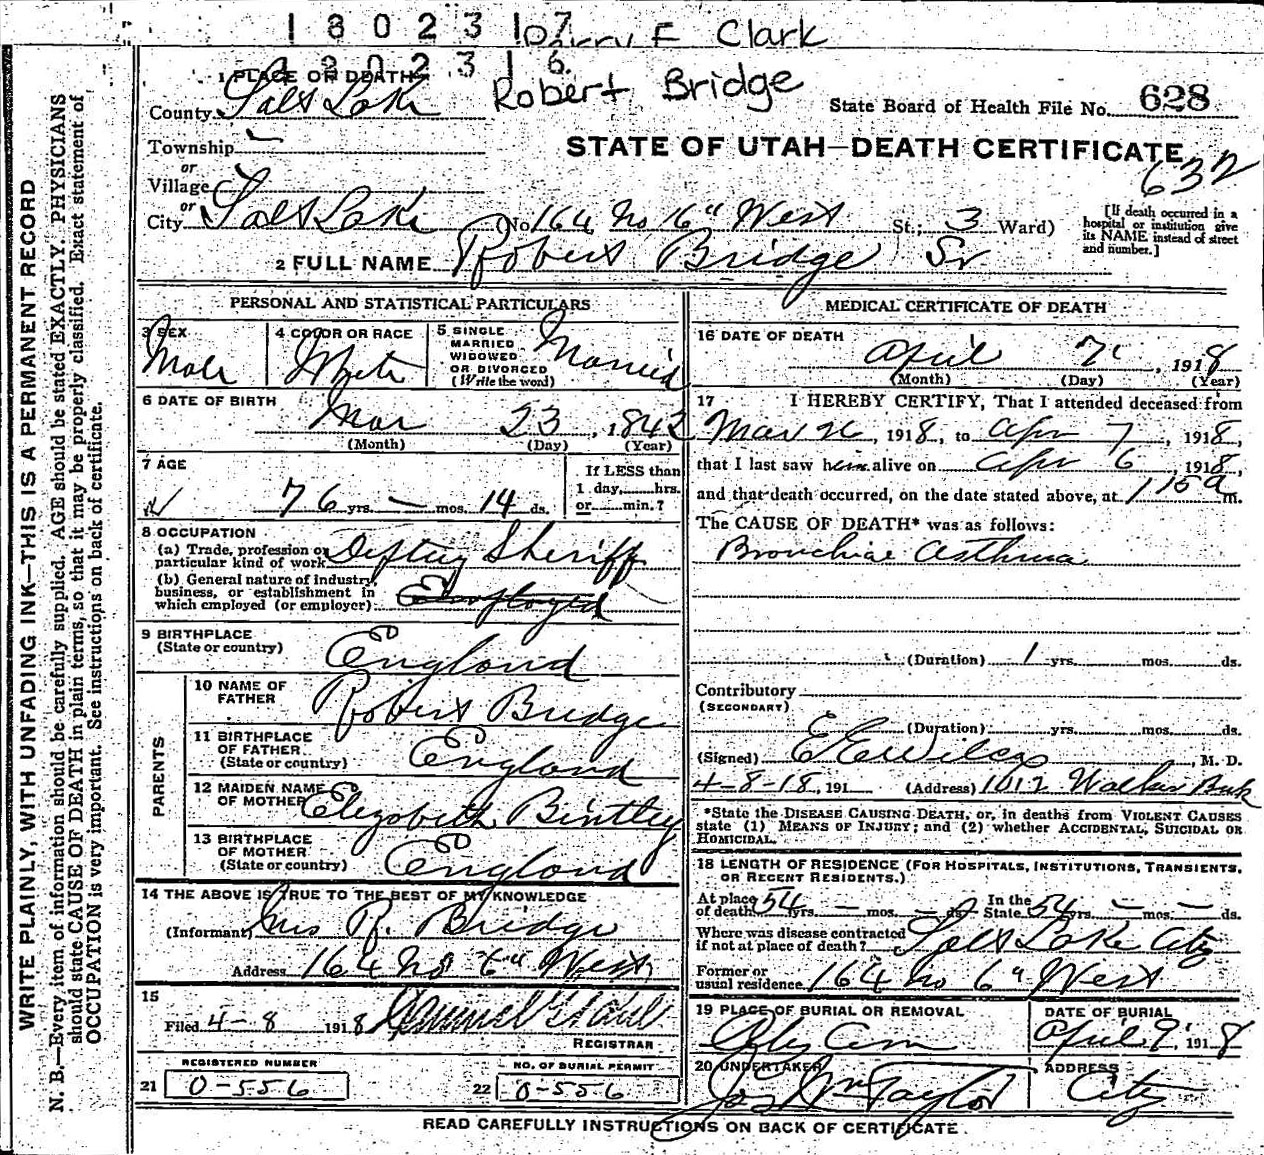 1 8 0 2 3 1 7
F Clark
2 0 2 3 1 6.
Robert Bridge
1 PLACE OF DEATH
County Salt Lake
State Board of Health File No. 628
Township —
STATE OF UTAH—DEATH CERTIFICATE
632
or
Village
or
City Salt Lake (No 164 No 6" West St.; 3 Ward)
[If death occurred in a
hospital or institution give
its NAME instead of street
and number.]
2 FULL NAME Robert Bridge Sr
PERSONAL AND STATISTICAL PARTICULARS
3 SEX Male
4 COLOR OR RACE White
5 SINGLE
MARRIED
WIDOWED
OR DIVORCED
(Write the word) Married
6 DATE OF BIRTH Mar 23, 1842
(Month) (Day) (Year)
7 AGE
76 yrs. — mos. 14 ds.
If LESS than
1 day, hrs.
or min.?
8 OCCUPATION
(a) Trade, profession or
particular kind of work Deputy Sheriff
(b) General nature of industry,
business, or establishment in
which employed (or employer) Employed
9 BIRTHPLACE
(State or country) England
PARENTS
10 NAME OF
FATHER Robert Bridge
11 BIRTHPLACE
OF FATHER
(State or country) England
12 MAIDEN NAME
OF MOTHER Elizabeth Bintley
13 BIRTHPLACE
OF MOTHER
(State or country) England
14 THE ABOVE IS TRUE TO THE BEST OF MY KNOWLEDGE
(Informant) Mrs R. Bridge
Address 164 No 6" West
15
Filed 4-8 1918
REGISTRAR
REGISTERED NUMBER
21 0-556
NO. OF BURIAL PERMIT
22 0-556
MEDICAL CERTIFICATE OF DEATH
16 DATE OF DEATH
April 7, 1918
(Month) (Day) (Year)
17 I HEREBY CERTIFY, That I attended deceased from
Mar 26, 1918, to Apr 7, 1918,
that I last saw him alive on Apr 6, 1918,
and that death occurred, on the date stated above, at 115 a m.
The CAUSE OF DEATH* was as follows:
Bronchial Asthma
(Duration) 1 yrs. mos. ds.
Contributory
(SECONDARY)
(Duration) yrs. mos. ds.
(Signed) E E Wilcox, M. D.
4-8-18, 191 (Address) 1012 Walker Bnk
*State the DISEASE CAUSING DEATH, or, in deaths from VIOLENT CAUSES
state (1) MEANS OF INJURY; and (2) whether ACCIDENTAL, SUICIDAL OR
HOMICIDAL.
18 LENGTH OF RESIDENCE (FOR HOSPITALS, INSTITUTIONS, TRANSIENTS,
OR RECENT RESIDENTS.)
At place
of death 54 yrs. — mos. — ds. In the
State 54 yrs. — mos. — ds.
Where was disease contracted
if not at place of death? Salt Lake City
Former or
usual residence 164 No 6" West
19 PLACE OF BURIAL OR REMOVAL
City Cem
DATE OF BURIAL
April 9, 1918
20 UNDERTAKER
Jos Wm Taylor
ADDRESS
City
READ CAREFULLY INSTRUCTIONS ON BACK OF CERTIFICATE.
WRITE PLAINLY, WITH UNFADING INK—THIS IS A PERMANENT RECORD
N. B.—Every item of information should be carefully supplied. AGE should be stated EXACTLY. PHYSICIANS
should state CAUSE OF DEATH in plain terms, so that it may be properly classified. Exact statement of
OCCUPATION is very important. See instructions on back of certificate.